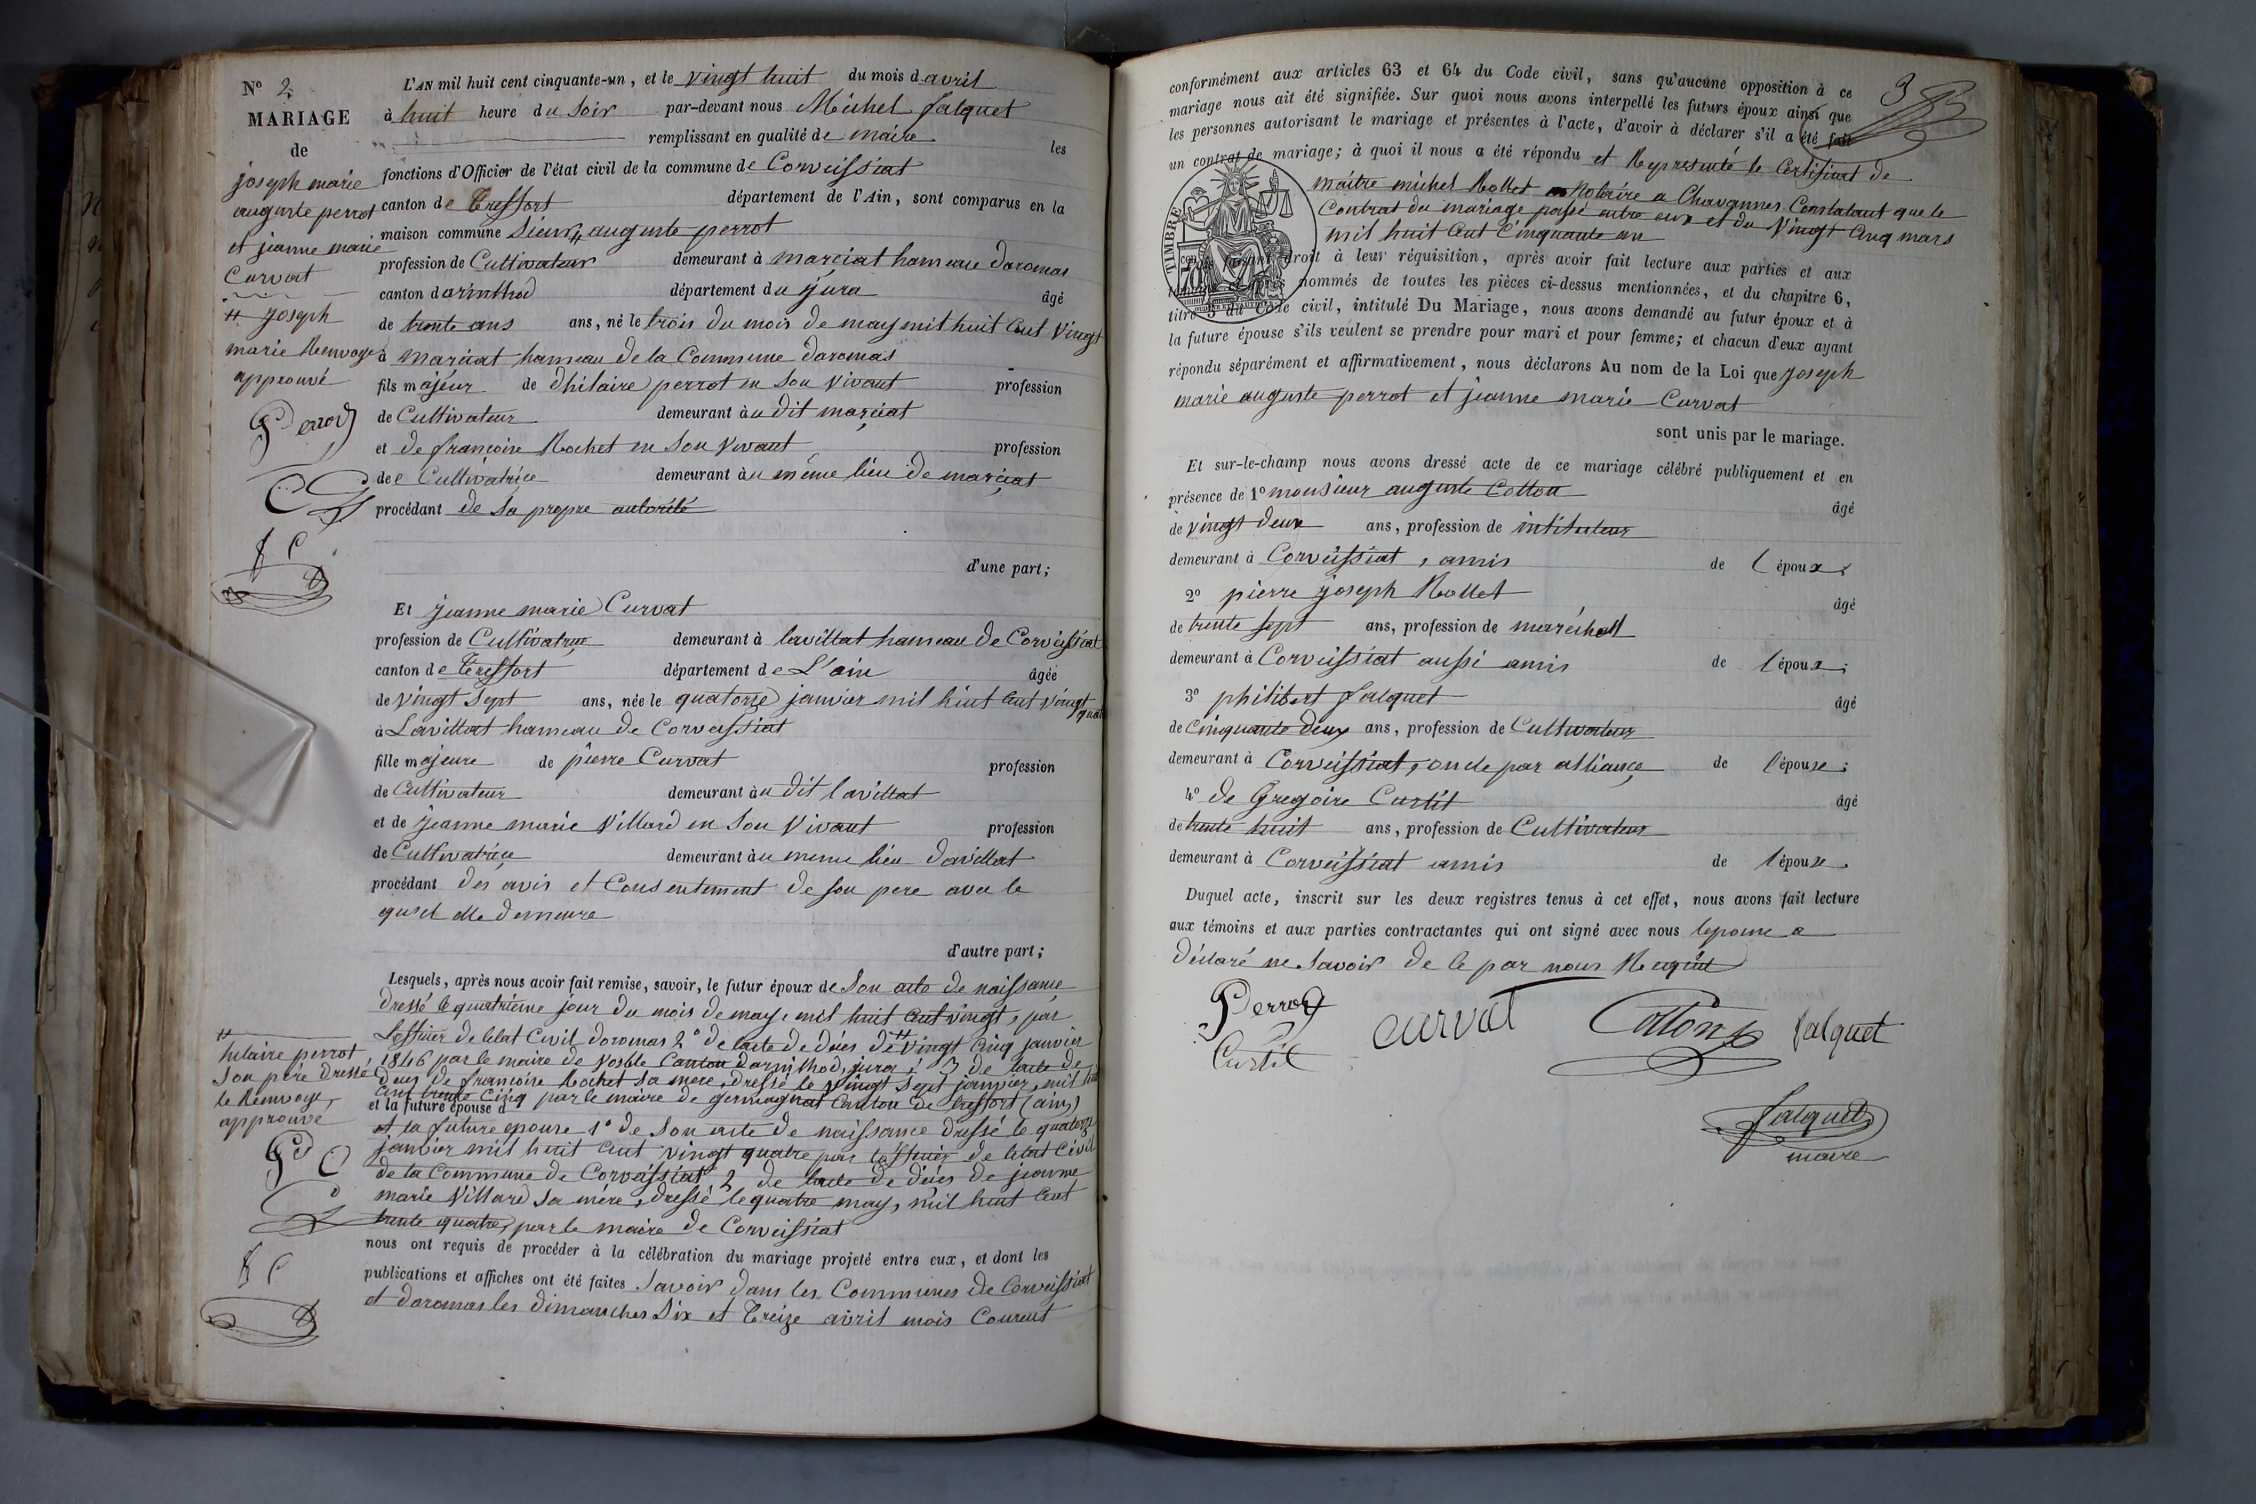 N° 2
MARIAGE
de
joseph marie
auguste perrot
et jeanne marie
Curvat
joseph
marie Renvoye
approuvé
Perrot
L'AN mil huit cent cinquante-un, et le vingt huit du mois d avril
à huit heure du soir par-devant nous Michel falquet
remplissant en qualité de maire les
fonctions d'Officier de l'état civil de la commune de Corveissiat
canton de Treffort département de l'Ain, sont comparus en la
maison commune Sieur auguste perrot
profession de Cultivateur demeurant à marciat hameau daromas
canton d arinthod département du jura âgé
de trente ans ans, né le trois du mois de may mil huit Cent vingt
à marciat hameau de la Commune daromas
fils majeur de dhilaire perrot en Son Vivant profession
de Cultivateur demeurant àu dit marciat
et de françoise Rochet en Son Vivant profession
de e Cultivatrice demeurant àu même lieu de marciat
procédant de Sa propre autorité
d'une part;
Et jeanne marie Curvat
profession de Cultivatrice demeurant à lavillat hameau de Corveissiat
canton de Treffort département de L'ain âgée
de vingt Sept ans, née le quatorze janvier mil huit Cent vingt quatre
à Lavillat hameau de Corveissiat
fille majeure de pierre Curvat profession
de Cultivateur demeurant àu dit lavillat
et de jeanne marie Villard en Son Vivant profession
de Cultivatrice demeurant àu meme lieu davillat
procédant des avis et Consentement de Son pere avec le
quel elle demeure
d'autre part;
Lesquels, après nous avoir fait remise, savoir, le futur époux de Son acte de naissance
dressé le quatrième jour du mois de may, mil huit Cent vingt, par
Lofficier de letat Civil daromas 2° de lacte de déces de vingt Cinq janvier
1846 par le maire de Vosble Canton darinthod, jura, 3 de lacte de
deces de françoise Rochet Sa mere, dressé le vingt Sept janvier, mil huit
Cent trente Cinq par le maire de germagnat Canton de treffort (ain)
et la future épouse d
et la future epouse 1° de Son acte de naissance dressé le quatorze
janvier mil huit Cent vingt quatre par lofficier de letat Civil
de la Commune de Corveissiat 2 de lacte de déces de jeanne
marie Villard Sa mére, dressé le quatre may, mil huit Cent
trente quatre, par le maire de Corveissiat
nous ont requis de procéder à la célébration du mariage projeté entre eux, et dont les
publications et affiches ont été faites Savoir dans les Communes de Corveissiat
et daromas les dimanches Six et Treize avril mois Courent
hilaire perrot
Son père dressé
le Renvoye
approuvé
3
conformément aux articles 63 et 64 du Code civil, sans qu'aucune opposition à ce
mariage nous ait été signifiée. Sur quoi nous avons interpellé les futurs époux ainsi que
les personnes autorisant le mariage et présentes à l'acte, d'avoir à déclarer s'il a été fait
un contrat de mariage; à quoi il nous a été répondu et Representé le Certificat de
maitre michel Rollet Notaire a Chavannes Constatant que le
Contrat du mariage passé entre eux et du Vingt Cinq mars
mil huit Cent Cinquante un
TIMBRE
droit à leur réquisition, après avoir fait lecture aux parties et aux
nommés de toutes les pièces ci-dessus mentionnées, et du chapitre 6,
titre 5 du Code civil, intitulé Du Mariage, nous avons demandé au futur époux et à
la future épouse s'ils veulent se prendre pour mari et pour femme; et chacun d'eux ayant
répondu séparément et affirmativement, nous déclarons Au nom de la Loi que joseph
marie auguste perrot et jeanne marie Curvat
sont unis par le mariage.
Et sur-le-champ nous avons dressé acte de ce mariage célébré publiquement et en
présence de 1° monsieur auguste Cotton
âgé
de vingt deux ans, profession de intituteur
demeurant à Corveissiat, amis de l époux;
2° pierre joseph Rollet
âgé
de trente sept ans, profession de maréchall
demeurant à Corveissiat aussi amis de l époux;
3° philibert falquet
âgé
de Cinquante deux ans, profession de Cultivateur
demeurant à Corveissiat, oncle par alliance de l'épouse;
4° de Gregoire Curtit
âgé
de trente huit ans, profession de Cultivateur
demeurant à Corveissiat amis de l épouse.
Duquel acte, inscrit sur les deux registres tenus à cet effet, nous avons fait lecture
aux témoins et aux parties contractantes qui ont signé avec nous lepouse a
déclaré ne Savoir de le par nous Requit
Perrot
curvat
Cotton
falquet
Curtit
falquet
maire